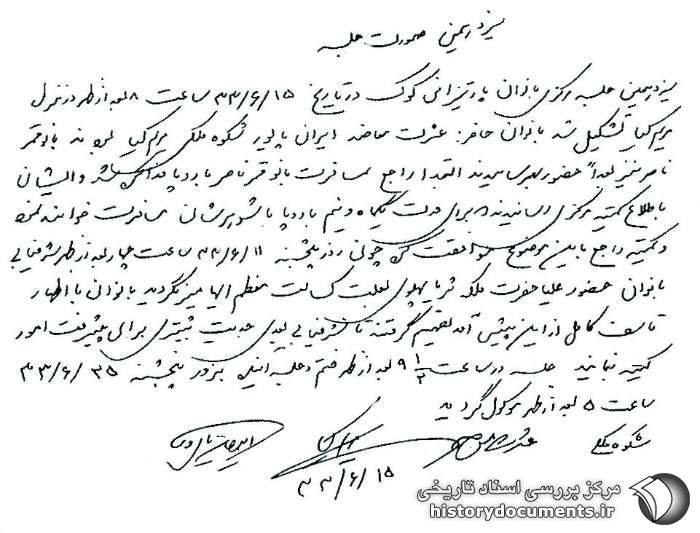 سیزدهمین صورت جلسه
سیزدهمین جلسه مرکزی بانوان پارتیزانی کوک در تاریخ ۳۳/۶/۱۵ ساعت ۸ بعد از ظهر در منزل
مریم کیا تشکیل شد بانوان حاضر: عشرت معاضد ایران پالیور شکوه ملکی مریم کیا بودند بانو قمر
ناصر نیز بعداً حضور بهم رسانیدند ابتدا راجع مسافرت بانو قمر ناصر باروپا مذاکره شد و ایشان
باطلاع کمیته مرکزی رسانیدند برای مدت یکماه و نیم باروپا با شوهرشان مسافرت خواهند نمود
و کمیته راجع باین موضوع موافقت کرد چون روز پنجشنبه ۳۳/۶/۱۱ ساعت چهار بعد از ظهر شرفیابی
بانوان حضور علیاحضرت ملکه ثریا پهلوی بعلت کسالت معظم الیها میسر نگردید بانوان با اظهار
تاسف کامل از این پیش آمد تصمیم گرفتند تا شرفیابی بعدی جدیت بیشتری برای پیشرفت امور
کمیته نمایند جلسه در ساعت ۹ ۱/۲ بعد از ظهر ختم و جلسه آتیه بروز پنجشنبه ۳۳/۶/۲۵
ساعت ۵ بعد از ظهر موکول گردید
شکوه ملکی
۳۳/۶/۱۵
مرکز بررسی اسناد تاریخی
historydocuments.ir